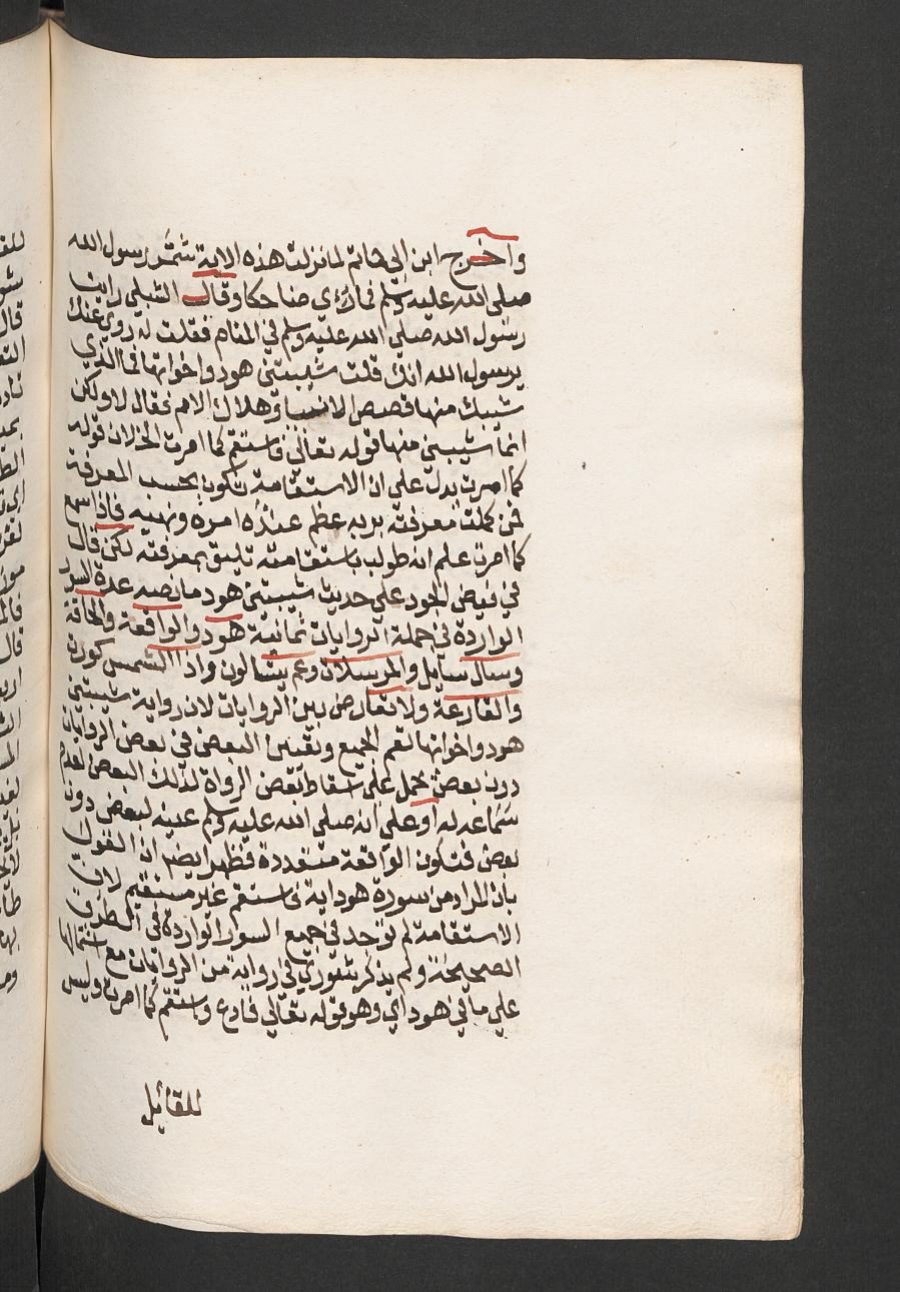 واخرج ابن ابي حاتم لما نزلت هذه الاية شمر رسول الله
صلي الله عليه وسلم فما رؤي ضاحكا وقال الشبلي رايت
رسول الله صلي الله عليه وسلم في المنام فقلت له روي عنك
يرسول الله انك قلت شيبتني هود واخواتها فما الذي
شيبك منها قصص الانبيا وهلاك الامم فقال لا ولكن
انما شيبني منها قوله تعالي فاستقم كما امرت الخ لان قوله
كما امرت يدل علي ان الاستقامة تكون بحسب المعرفة
فمن كملت معرفته بربه عظم عنده امره ونهيه فاذا سمع
كما امرت علم انه طولب باستقامته تليق بمعرفته لكن قال
في فيض الجود علي حديث شيبتني هود ما نصه عدة السور
الواردة في جملة الروايات ثمانية هود والواقعة والحاقة
وسال سايل والمرسلات وعم يتسالون واذا الشمس كورت
والقارعة ولا تعارض بين الروايات لان رواية شيبتني
هود واخواتها تعم الجميع وتعيين البعض في بعض الروايات
دون بعض يحمل علي اسقاط بعض الرواة لذلك البعض لعدم
سماعه له او علي انه صلي الله عليه وسلم عينه لبعض دون
بعض فتكون الواقعة متعددة فظهر ايضا ان القول
بان المراد من سورة هود اية فاستقم غير مستقيم لان
الاستقامة لم توجد في جميع السور الواردة في الطرق
الصحيحة ولم يذكر شوري في رواية من الروايات مع اشتمالها
علي ما في هود اي وهو قوله تعالي فادع واستقم كما امرت وليس
للقائل